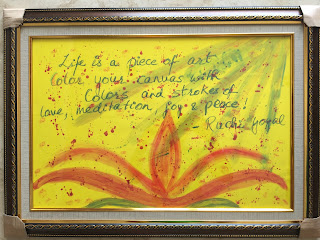 Life is a piece of art
Color your canvas with
Colors and strokes of
love, meditation, joy & peace!
- Rachi Goyal